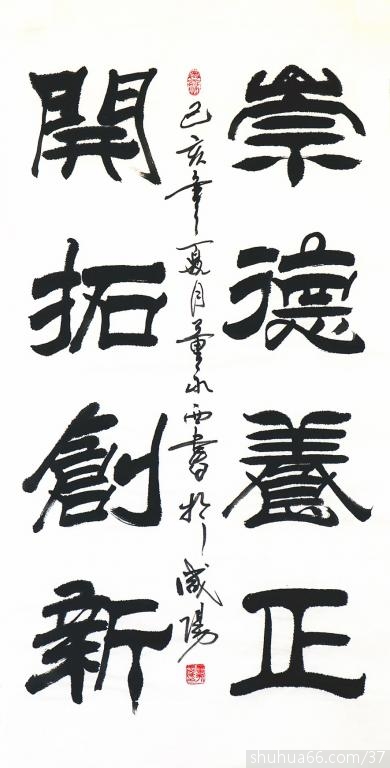 崇德養正
開拓創新
己亥年夏月董永西書於咸陽
shuhua66.com/37